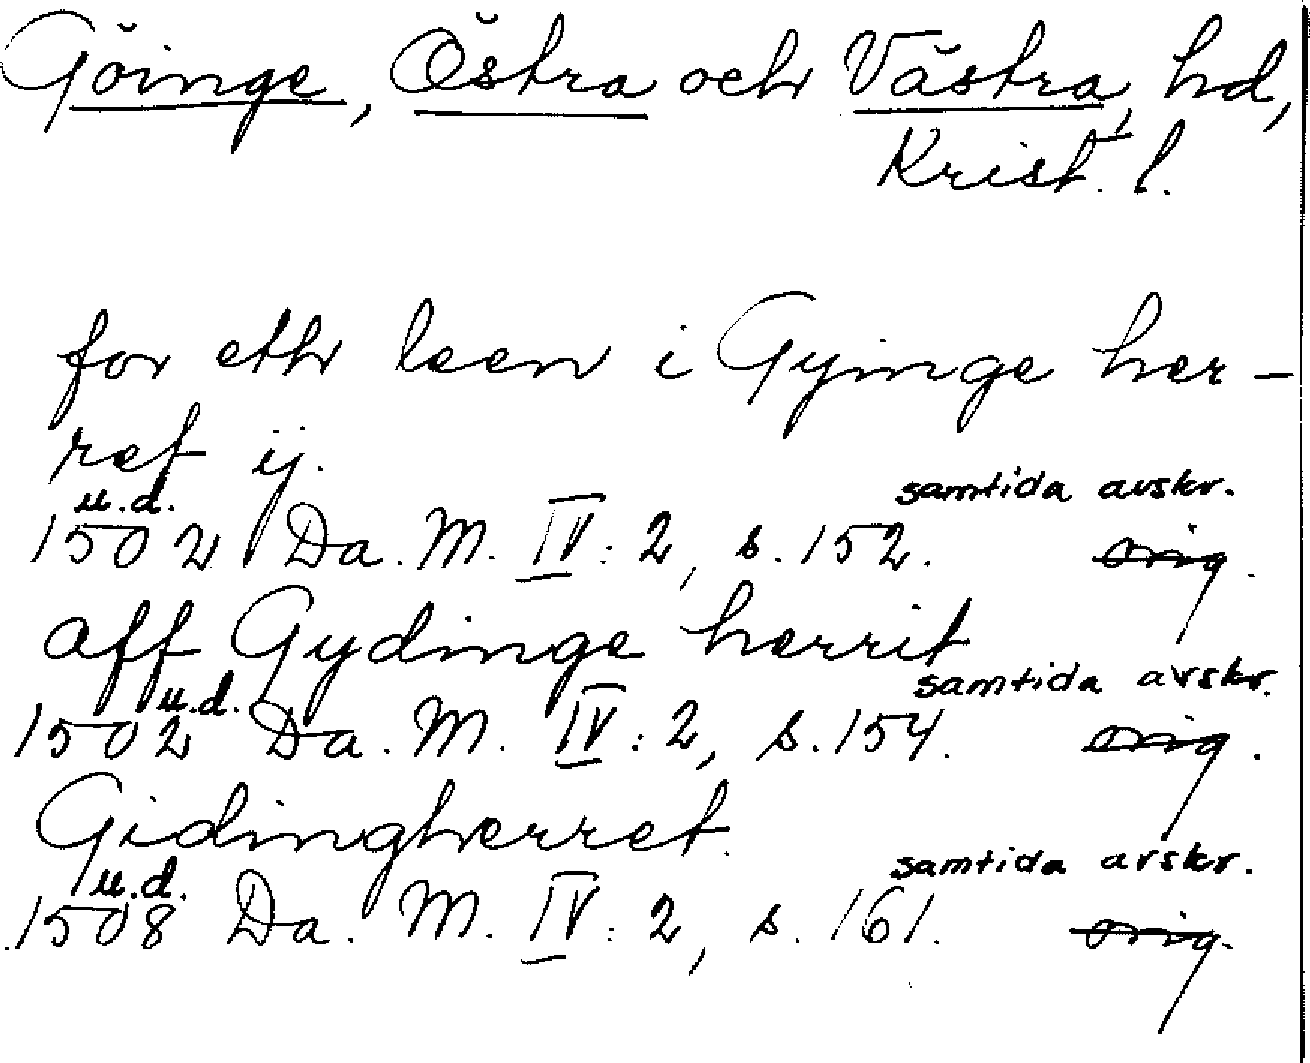 Göinge, Östra och Västra, hd,
Krist. l.
for eth leen i Gyinge her-
ret ij.
u.d. samtida avskr.
1502 Da. M. IV: 2, s. 152. orig.
aff Gydinge herrit
u.d. samtida avskr.
1502 Da. M. IV: 2, s. 154. orig.
Gidingherret.
u.d. samtida avskr.
1508 Da. M. IV: 2, s. 161. orig.